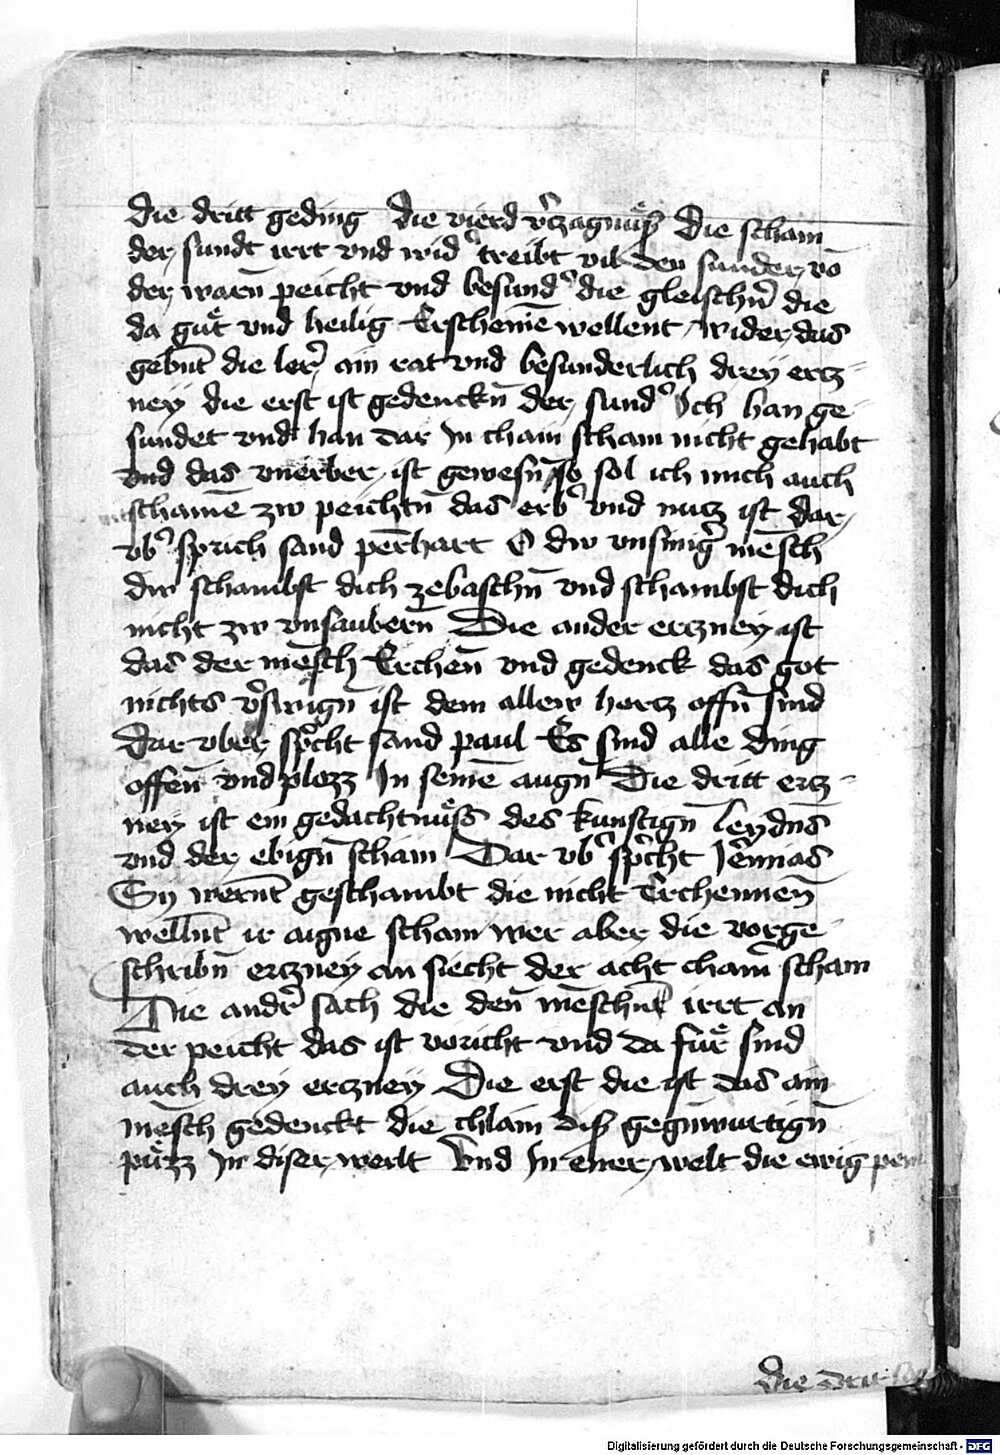 die dritt geding die vierd v̉czagnuͤß Die scham
der sundt irrt vnd wid̉ treibt vil den sunder vō
der warn̄ peicht vnd besund̉ die gleischn̉ die
da guͤt vnd heilig Erscheinē wellent wider das
gebn̄t die ler̉ ain rat vnd besunderlich drey ercz-
ney die erst ist gedenckn̄ der sund̉ Ich han ge-
sundet vnd han dar In chain scham nicht gehabt
vnd das vnerber ist gewesn̄ so sol ich mich auch
schamē zw peichtn̄ das erb̉ vnd nucz ist dar
vb̉ sprich sand pern̄hart O dw vnsinig̉ mēsch
dw schambst dich zebaschn̄ vnd schambst dich
nicht zw vnsaubern̄ Die ander erczney ist
das der mēsch Erchen̄ vnd gedenck das got
nichts v̉swign̄ ist dem allew hercz offn̄ sind
Dar vber sp̉cht sand paul Es sind alle ding
offen̄ vnd plozz In seinē augn̄ Die dritt ercz-
ney ist ein gedachtnuͤss des kunftign̄ leydn̄s
vnd der ebign̄ scham Dar vb̉ sp̉cht Jer̉mias
Sy wern̄t geschambt die nicht Erchennen̄
welln̄t ir aigne scham wer aber die vorge-
schribn̄ erczney an siecht der acht chain̄ scham
Die andr̉ sach die den̄ mēschn̄ irrt an
der peicht das ist voricht vnd da fuͤr sind
auch drey erczney Die erst die ist das ain
mēsch gedenckt die chlain diß gegn̄wurtign̄
puͤzz In diser werlt Vnd In ener welt die ewig pein
die drit
Digitalisierung gefördert durch die Deutsche Forschungsgemeinschaft - DFG